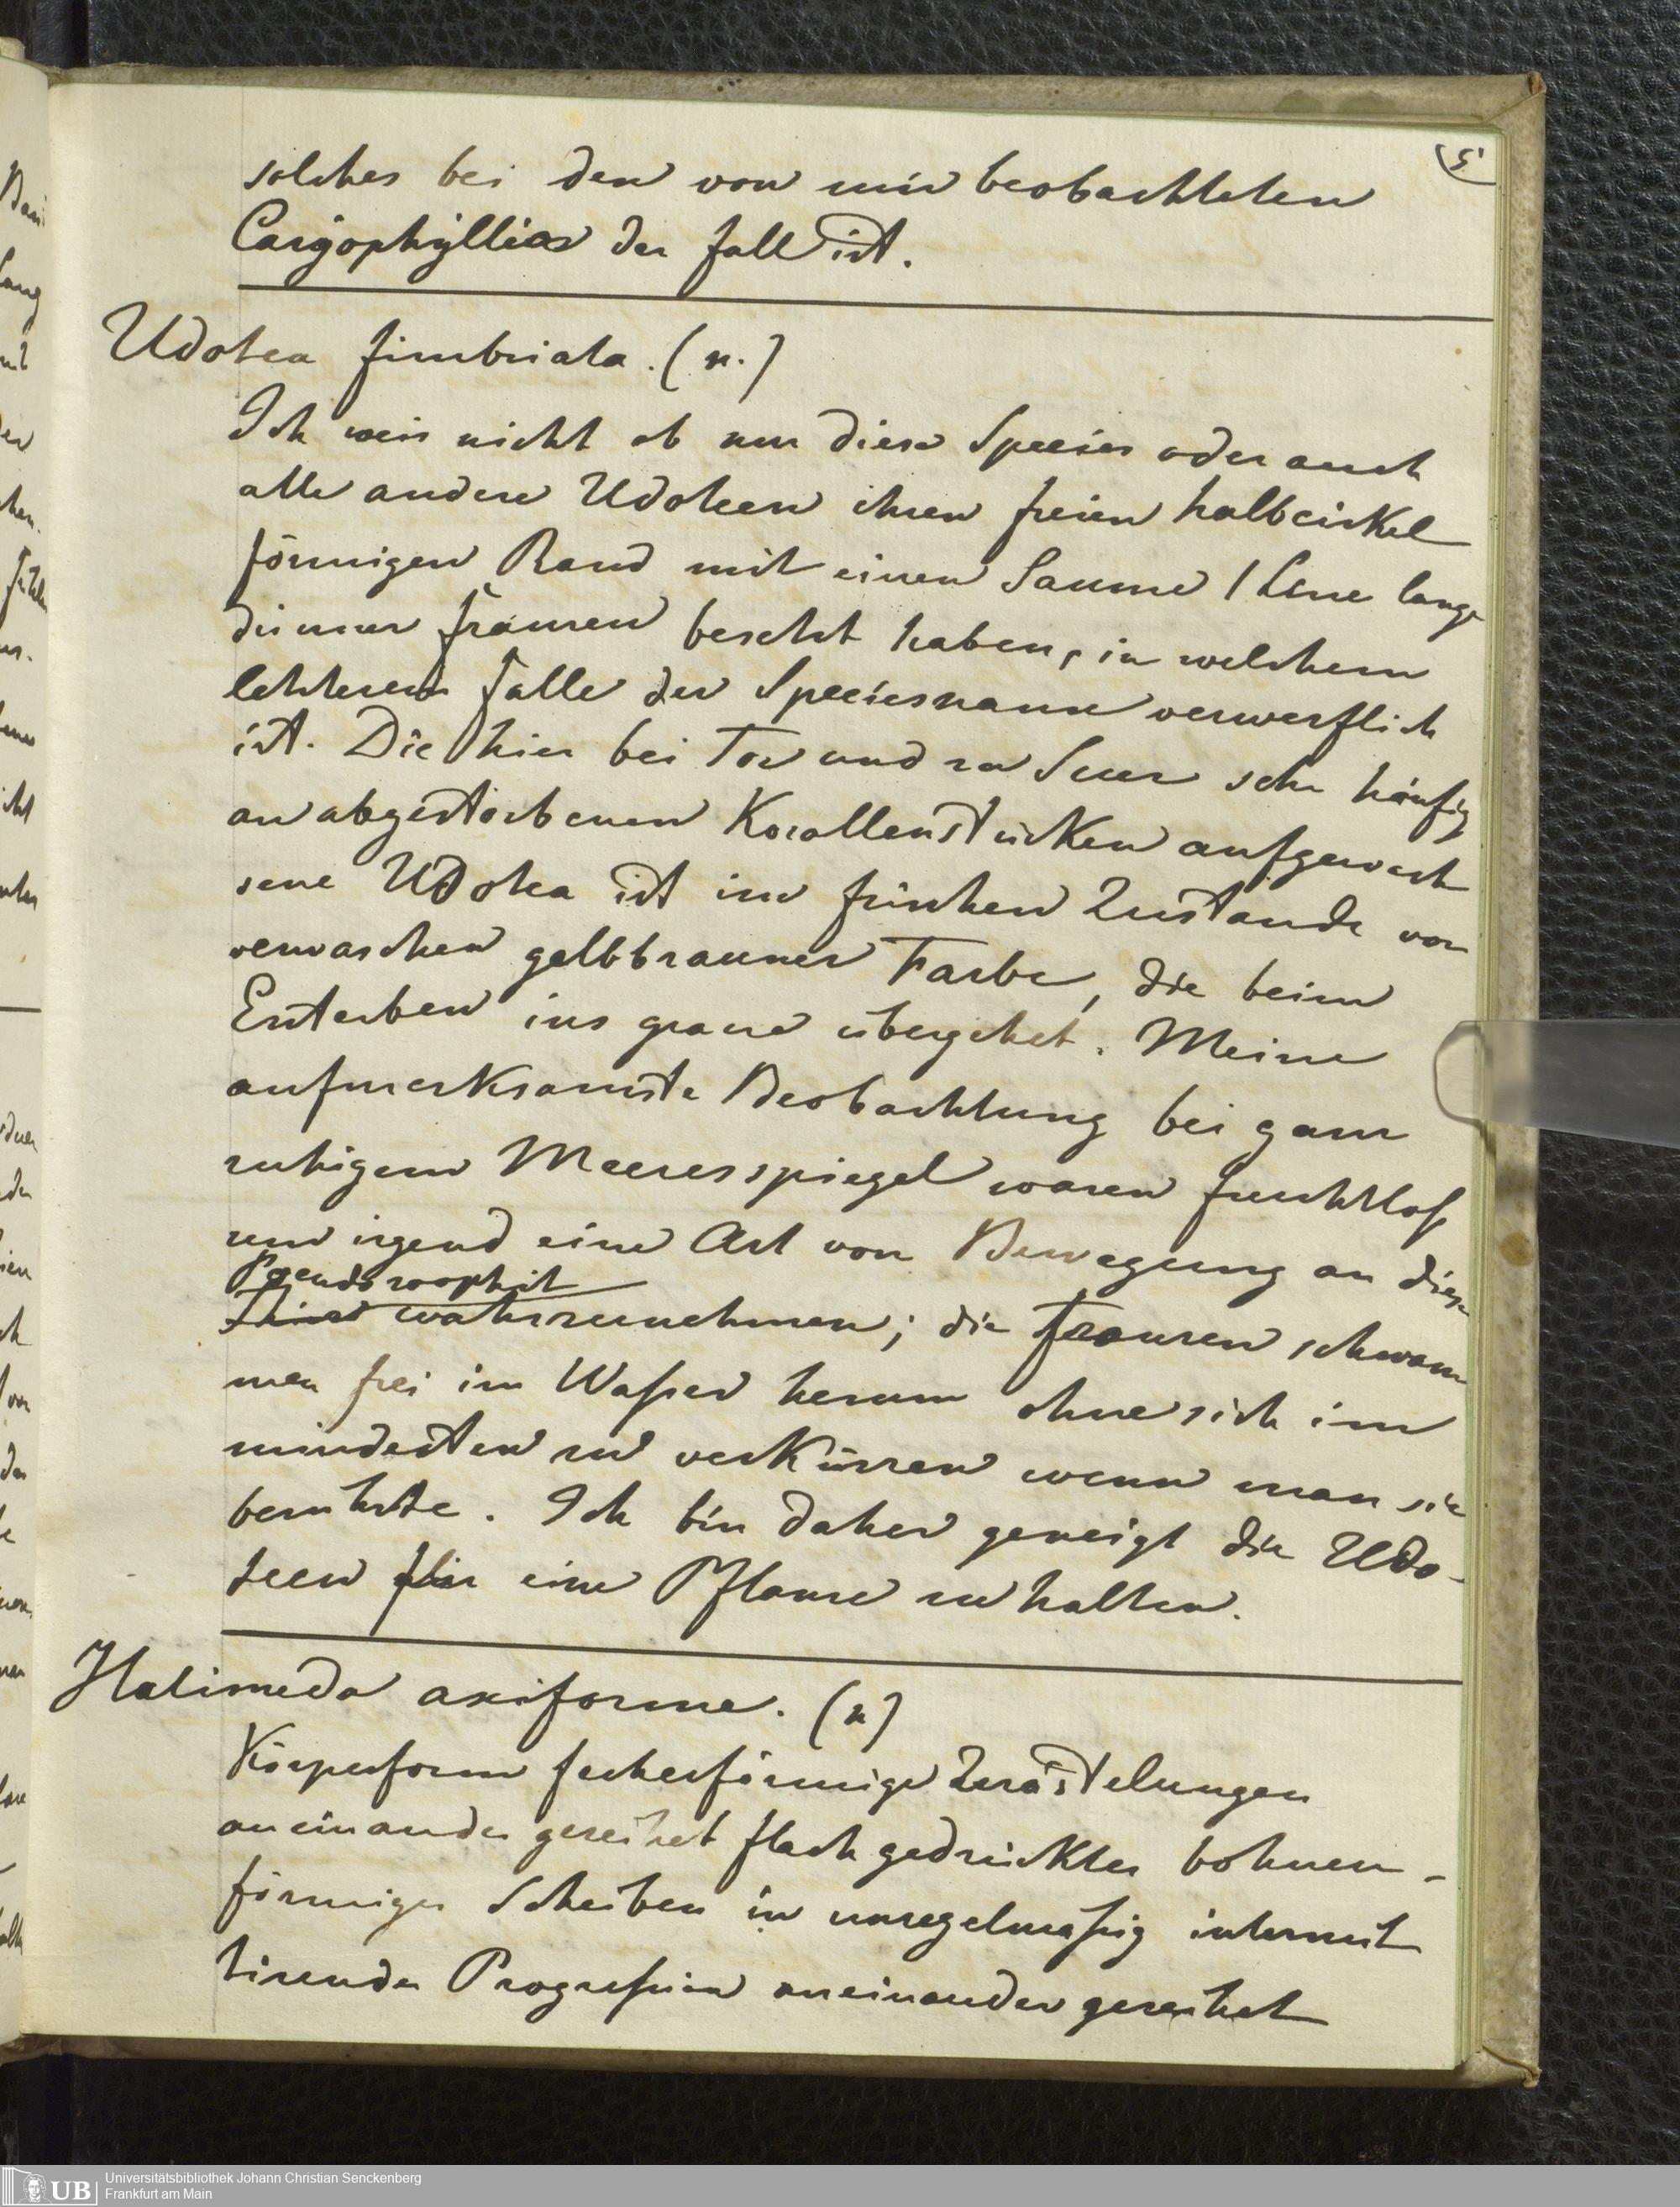 5
solches bei den von mir beobachteten
Caryophyllias der fall ist.
Udotea fimbriata. (n.)
Ich weis nicht ob nur diese Species oder auch
alle andere Udoteen ihren freien halbcirkel
förmigen Rand mit einen Saume 1 Linie lange
dünner fransen besetzt haben, in welchem
letzteren falle der Speciesname verwerflich
ist. Die hier bei Tor und zu Suez sehr häufig
an abgestorbenen Korallenstücken aufgewach
sene Udotea ist im frischen Zustande von
verwaschen gelbbrauner Farbe, die beim
Ersterben ins graue übergehet. Meine
aufmerksamste Beobachtung bei ganz
ruhigem Meeresspiegel waren fruchtlos
um irgend eine Art von Bewegung an diese
Pseudozoophit
wahrzunehmen; die Fransen schwam
men frei im Waßer herum ohne sich im
mindesten zu verkürzen wenn man sie
beruhrte. Ich bin daher geneigt die Udo-
teen für eine Pflanze zu halten.
Halimeda axiforme. (n)
Körperform fecherförmige Zerästelungen
aneinander gereihet flach gedrückter bohnen-
förmiger Scheiben in unregelmäßig intermit
tirender Progreßion aneinander gereihet
Universitätsbibliothek Johann Christian Senckenberg
Frankfurt am Main
UB